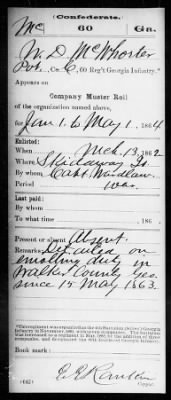 (Confederate.)
Mc 60 Ga.
W. D. McWhorter
Pvt., Co. C, 60 Reg't Georgia Infantry.*
Appears on
Company Muster Roll
of the organization named above,
for Jan. 1. to May 1., 1864.
Enlisted:
When Mch. 13, 1862
Where Skidaway Is.
By whom Capt. Wardlaw
Period War.
Last paid:
By whom
To what time , 186 .
Present or absent Absent.
Remarks: Detailed on
enrolling duty in
Walker County Geo.
since 15 May 1863.
Book mark:
(642) Copyist.